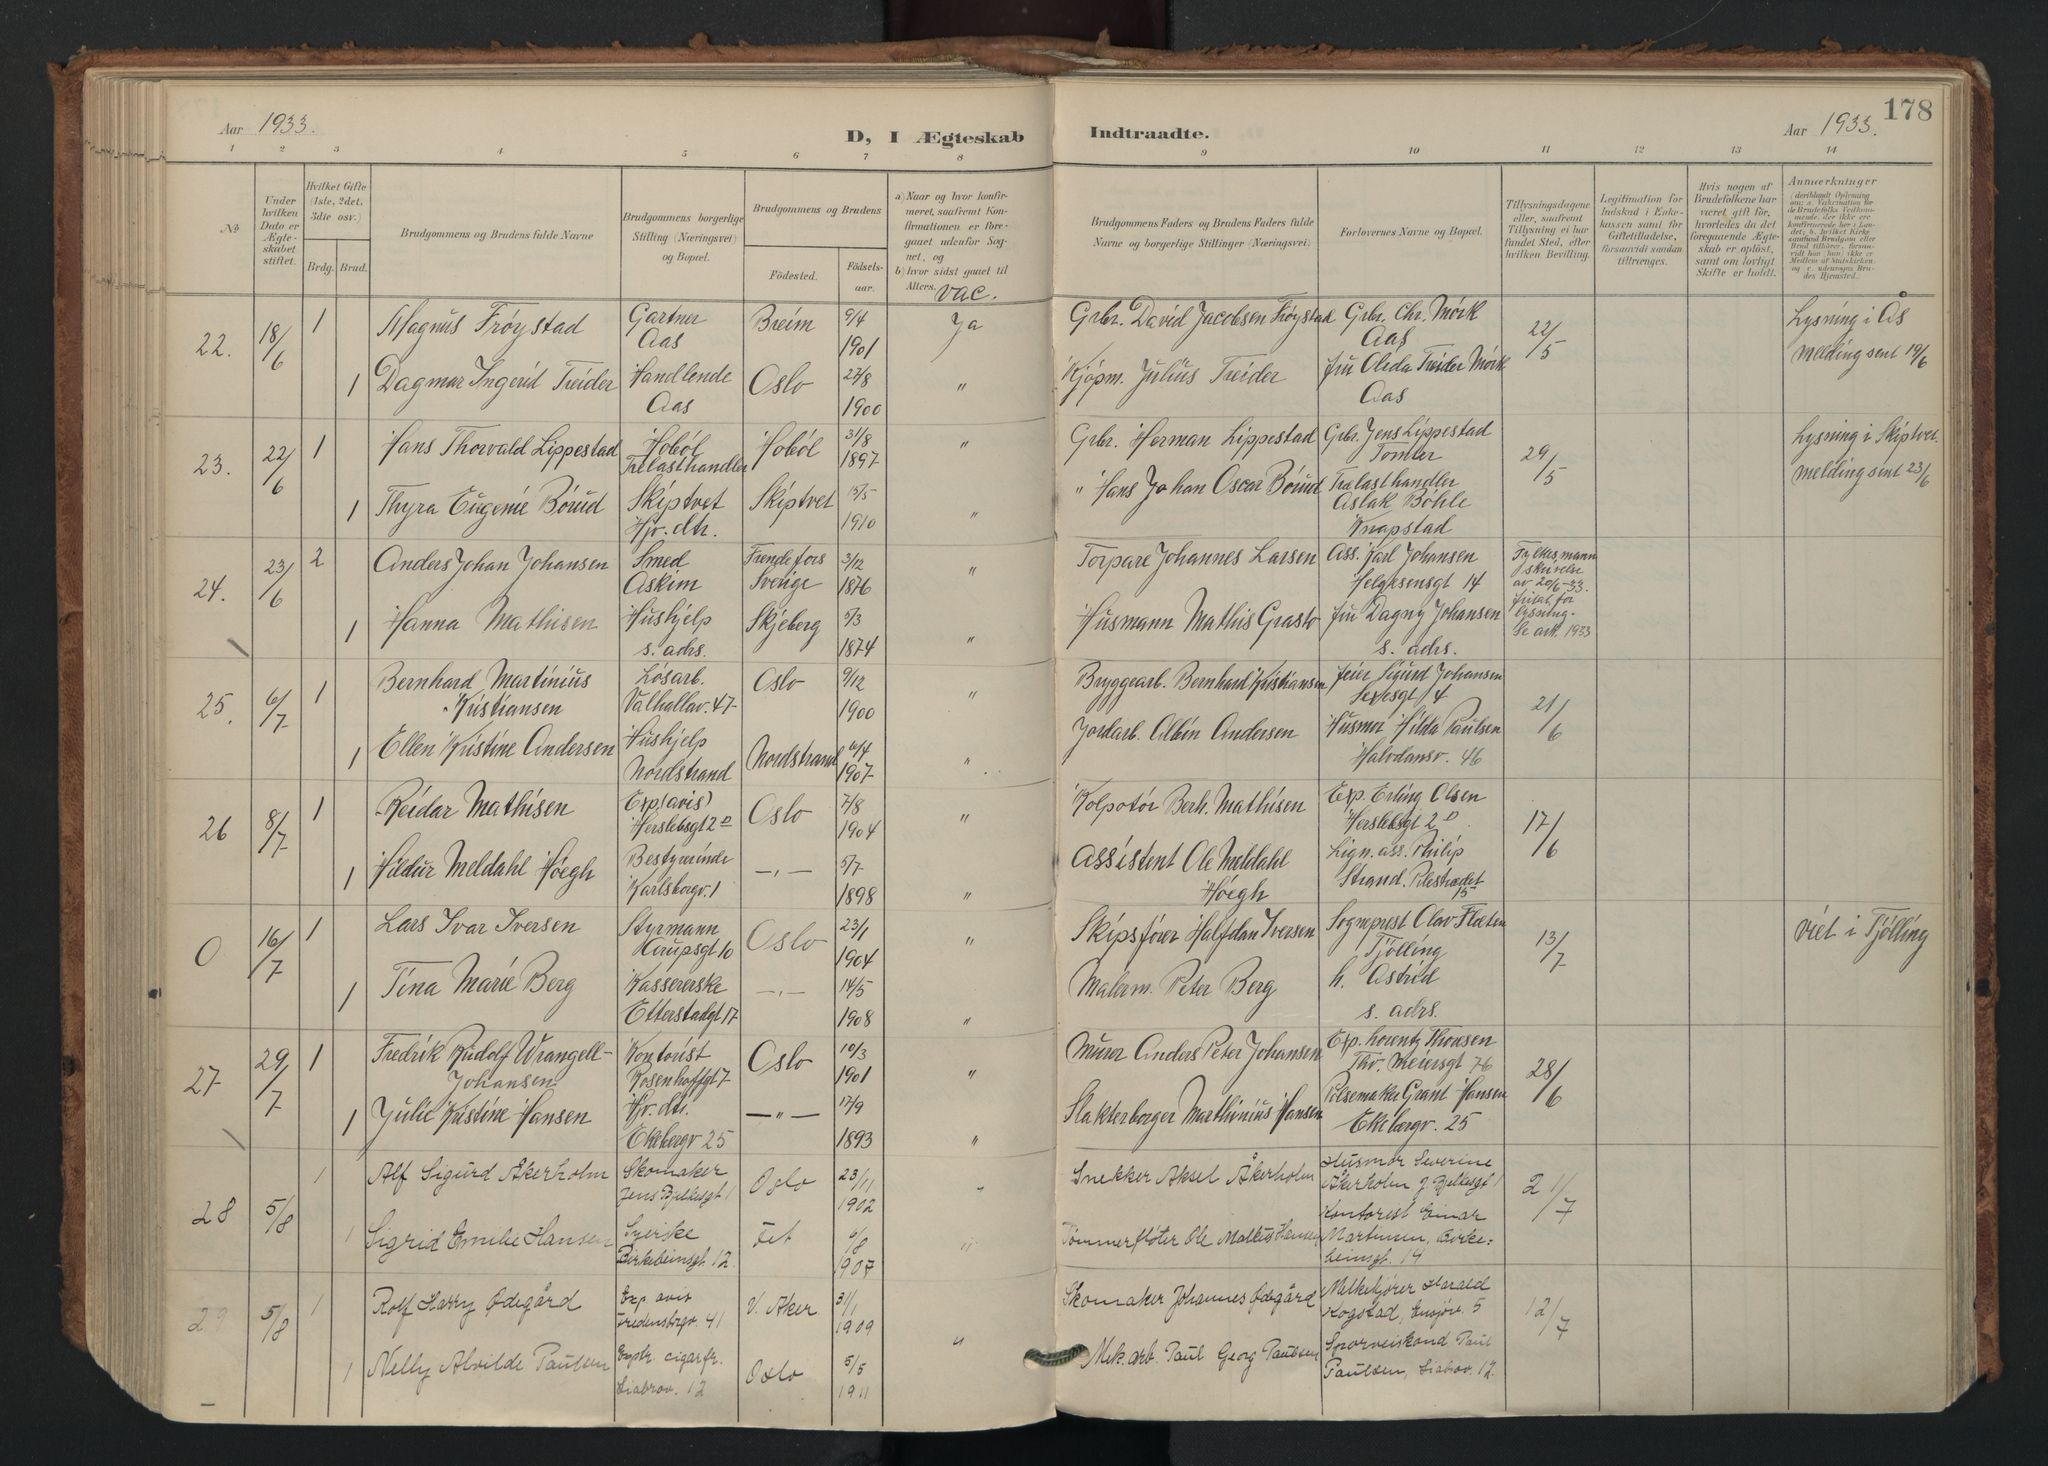 178
Aar 1933.
D, I Ægteskab
Indtraadte.
Aar 1933.
1 2 3 4 5 6 7 8 9 10 11 12 13 14
No
Under hvilken Dato er Ægteskabet stiftet.
Hvilket Gifte (1ste, 2det, 3die osv.)
Brdg. Brud.
Brudgommens og Brudens fulde Navne
Brudgommens borgerlige Stilling (Næringsvei) og Bopæl.
Brudgommens og Brudens
Fødested.
Fødselsaar.
a) Naar og hvor konfirmeret, saafremt Konfirmationen er foregaaet udenfor Sognet, og
b) hvor sidst gaaet til Alters.
vac.
Brudgommens Faders og Brudens Faders fulde Navne og borgerlige Stillinger (Næringsvei)
Forlovernes Navne og Bopæl.
Tillysningsdagene eller, saafremt Tillysning ei har fundet Sted, efter hvilken Bevilling.
Legitimation for Indskud i Enkekassen samt for Giftetilladelse, forsaavidt saadan tiltrænges.
Hvis nogen af Brudefolkene har været gift før, hvorledes da det foregaaende Ægteskab er opløst, samt om lovligt Skifte er holdt.
Anmærkninger
22. 18/6 1 Magnus Frøystad Gartner Aas Breim 9/4 1901 Ja Grbr. David Jacobsen Frøystad Grbr. Chr. Mørk Aas 22/5 Lysning i Ås melding sent 19/6
1 Dagmar Ingerid Treider Handlende Aas Oslo 27/8 1900 " Kjøpm. Julius Treider fru Olida Treider Mørk Aas
23. 22/6 1 Hans Thorvald Lippestad Hobøl Trelasthandler Hobøl 31/8 1897 " Grbr. Herman Lippestad Grbr. Jens Lippestad Tomter 29/5 Lysning i Skiptvet. melding sent 23/6
1 Thyra Eugenie Börud Skiptvet Hjv. dtr. Skiptvet 15/5 1910 " " Hans Johan Oscar Börud Trelasthandler Aslak Bøhle Knapstad
24. 23/6 2 Anders Johan Johansen Smed Askim Frendefors Sverige 3/12 1876 " Torpare Johannes Larsen Ass. Karl Johansen Helgesensgt 14 Fylkesmann skrivelse av 20/6-33. fritat for lysning. Se ark. 1933
1 Hanna Mathisen Hushjelp s. adrs. Skjeberg 5/3 1874 " Husmann Mathis Grasto fru Dagny Johansen s. adrs.
25. 6/7 1 Bernhard Martinius Kristiansen Løsarb. Valhallav. 47 Oslo 9/12 1900 " Bryggearb. Bernhard Kristiansen feier Sigurd Johansen Sexesgt 4 21/6
1 Ellen Kristine Andersen Hushjelp Nordstrand Nordstrand 6/4 1907 " Jordarb. Albin Andersen Husmor Hilda Paulsen Halvdansv. 46
26 8/7 1 Reidar Mathisen Exp (avis) Herslebsgt 2 D Oslo 7/8 1904 " Kolpotør Berh. Mathisen Exp. Erling Olsen Herslebsgt 2 D 17/6
1 Hildur Meldahl Høegh Bestyrerinde Karlsborgv. 1 —"— 5/7 1898 " Assistent Ole Meldahl Høegh Lign. ass. Philip Strand. Pilestrædet 15
0 16/7 1 Lars Ivar Iversen Styrmann Kirupsgt 10 Oslo 23/1 1904 " Skipsfører Halfdan Iversen Sogneprest Olav Flæten Tjølling 13/7 viet i Tjølling
1 Tina Marie Berg Kassererske Etterstadgt 17 —"— 14/5 1908 " Malerm. Peter Berg h. Astrid s. adrs.
27 29/7 1 Fredrik Rudolf Wrangell-Johansen Kontorist Rosenhoffgt 7 Oslo 10/3 1901 " Murer Anders Peter Johansen Exp. Lorentz Thonsen Thv. Meiersgt 76 28/6
1 Julie Kristine Hansen Hjv. dtr. Ekebergv 25 —"— 17/9 1893 " Slakterborger Marthinius Hansen Pølsemaker Grant Hansen Ekebergv. 25
28 5/8 1 Alf Sigurd Åkerholm Skomaker Jens Bjelkesgt 1 Oslo 23/11 1902 " Snekker Aksel Åkerholm Husmor Severine Åkerholm J Bjelkesgt 1 21/7
1 Sigrid Emilie Hansen Syerske Birkebeinsgt. 12 Fet 6/8 1907 " Tømmerfløter Ole Mathis Hansen Kontorist Einar Martinsen, Birkebeinsgt. 14
29 5/8 1 Rolf Harry Ødegård Exp. avis Fredensborgv. 41 V. Aker 31/1 1909 Skomaker Johannes Ødegård Melkekjører Harald Kogstad, Ensjøv. 5 12/7
1 Nelly Alvilde Paulsen Exptr. cigarfr. Liabrov. 12 Oslo 5/5 1911 " Mek. arb. Paul Georg Paulsen Sporveiskond Paul Paulsen, Liabrov. 12.